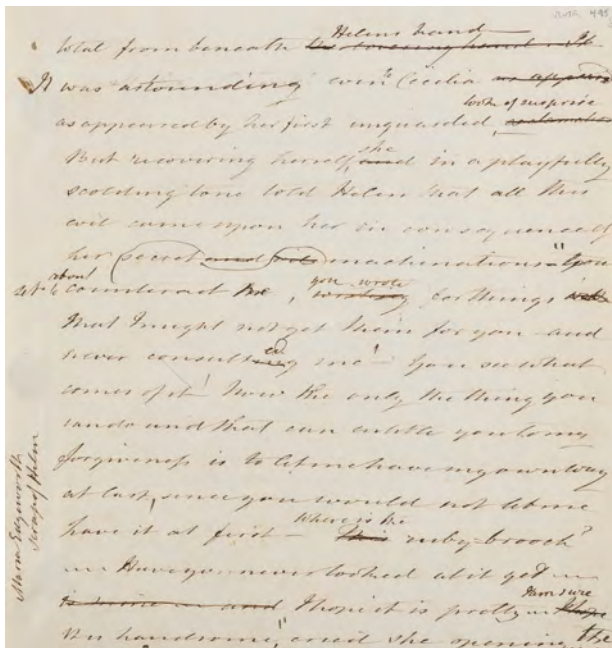 Helens hand
total from beneath her covering hand - It
It was astounding even to Cecilia as appears
look of surprise
as appeared by her first unguarded,
But recovering herself, she and in a playfully
scolding tone told Helen that all this
evil came upon her in consequence of
her secret and vile machinations - "You
about
set to counteract me, you wrote for things
that I might not get them for you - and
never consulted me! You see what
comes of it! Now the only the thing you
can do and that can entitle you to my
forgiveness is to let me have my own way
at last, since you would not let me
have it at first - Where is the This ruby-brooch?
Have you never looked at it yet
is mine and I hope it is pretty I am sure I hope
tis handsome," cried she opening the
Maria Edgeworth
Scrap of Helen